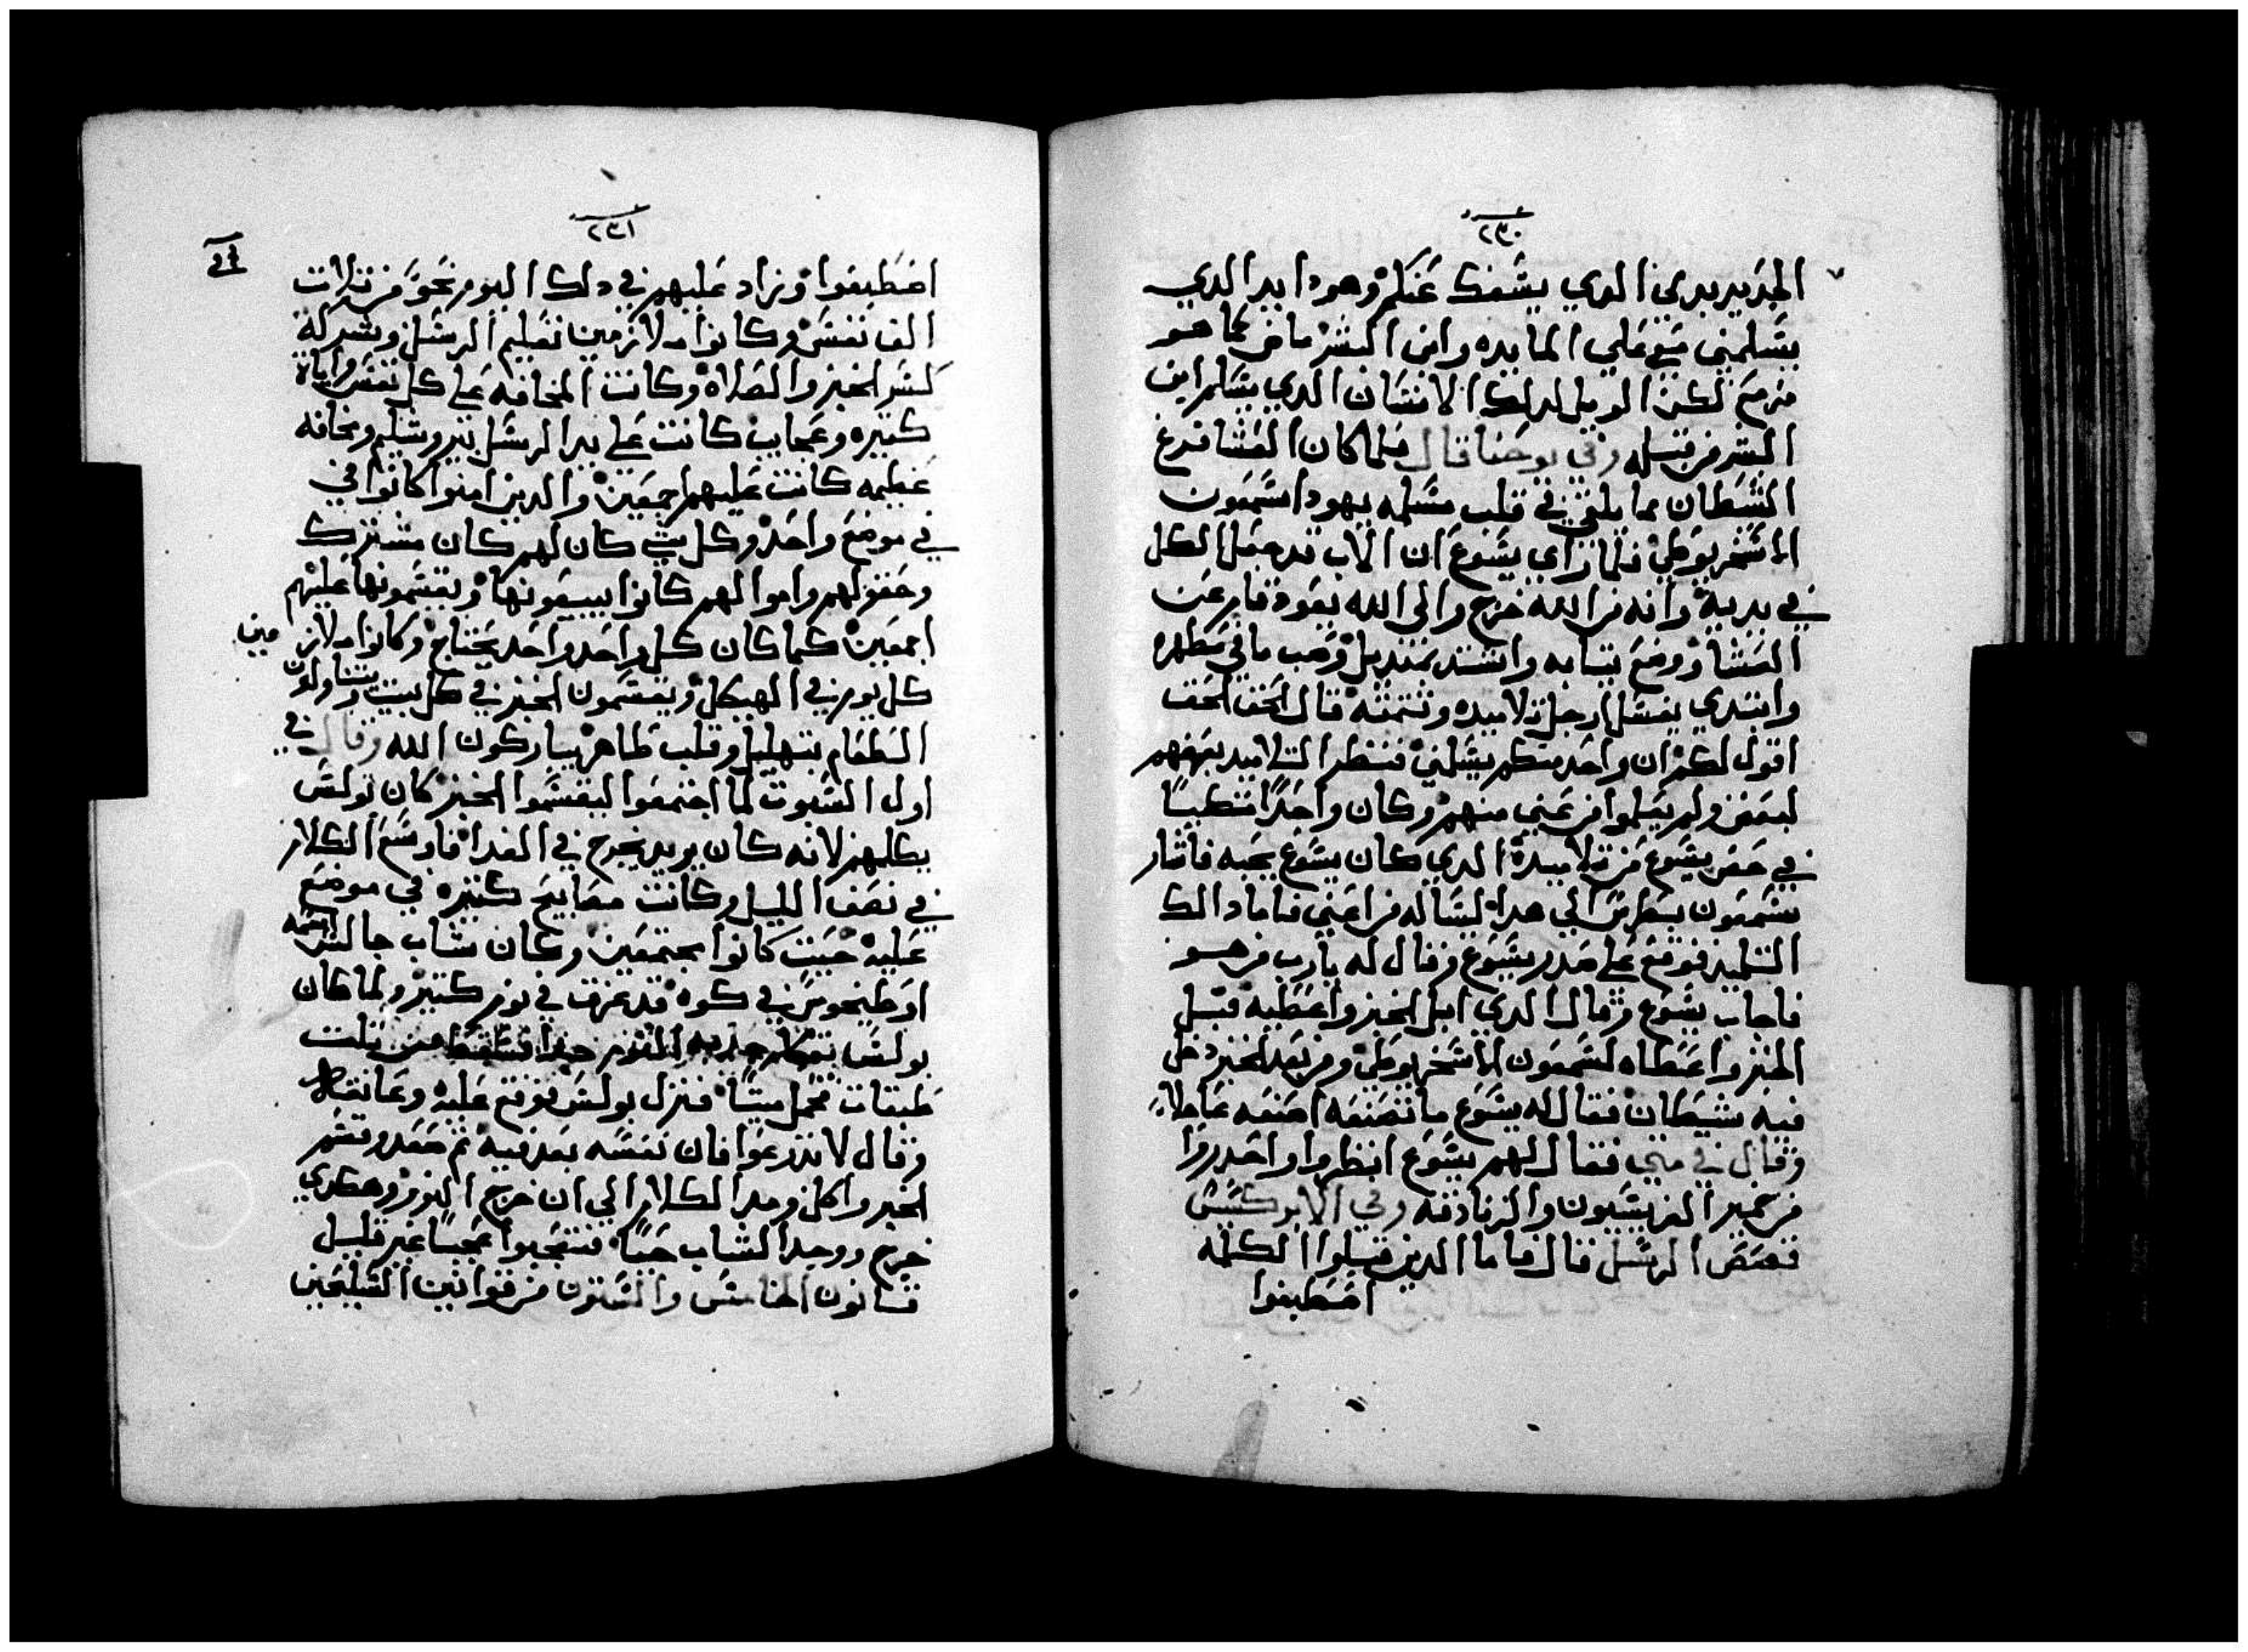 ٢٣٠
الجديد بدمي الدي يشفك عنكم وهودا يد الدي
يسلمني معي علي المايده وابن البشر ماض كما هو
مزمع لكن الويل لدلك الانسان الدي يسلم ابن
البشر من قبله وفي يوحنا قال فلما كان العشا فرغ
الشيطان مما يلقي في قلب مسلمه يهودا سمعون
الاسخريوطي فلما راي يسوع ان الاب قد جعل الكل
في يديه وانه من الله خرج والي الله يعود قام عن
العشا ووضع تيابه واتشد بمنديل وصب ما في مطهره
وابتدي يغسل ارجل تلاميده وتتمته قال الحق الحق
اقول لكم ان واحد منكم يسلمني فنظر التلاميد بعضهم
لبعض ولم يعلموا من عني منهم وكان واحدًا متكيًا
في حضن يسوع من تلاميده الدي كان يسوع يحبه فاشار
سمعون بطرس الي هدا ليساله من اعني فاما دالك
التلميد فوقع علي صدر يسوع وقال له يا رب من هو
فاجاب يسوع وقال الدي ابل الخبز واعطيه فبل
الخبز واعطاه لسمعون الاسخريوطي ومن بعد الخبز دخل
فيه شيطان فقال له يسوع ما تصنعه اصنعه عاجلاً
وقال في متي فقال لهم يسوع انظروا واحدروا
من خمير الفريسيون والزنادقه وفي الابركسيس
قصص الرسل قال فاما الدين قبلوا الكلمه
اصطبغوا
٢٣١
اصطبغوا وزاد عليهم في دلك اليوم نحو من تلات
الف نفس وكانوا ملازمين تعليم الرسل وشركة
كسر الخبز والصلاة وكانت المخافه علي كل نفس وايات
كتيره وعجايب كانت علي يد الرسل بيروشليم ومخافه
عظيمه كانت عليهم اجمعين والدين امنوا كانوا في
في موضع واحد وكل شي كان لهم كان مشترك
وحقولهم واموالهم كانوا يبيعونها ويقسمونها عليهم
اجمعين كما كان كل واحد واحد يحتاج وكانوا ملازمين
كل يوم في الهيكل ويقسمون الخبز في كل بيت ويتناولون
الطعام بتهليل وقلب طاهر يباركون الله وقال في
اول السبوت لما اجتمعوا ليقسموا الخبز كان بولس
يكلمهم لانه كان يريد يخرج في الغد فاوسع الكلام
في نصف الليل وكانت مصابيح كتيره في موضع
عليه حيت كانوا مجتمعين وكان شاب جالس اسمه
اوطيخوس في كوه قد غرق في نوم كتير ولما كان
بولس يتكلم جدبه النوم جدا فسقط من تلت
طبقات فحمل ميتًا فنزل بولس فوقع عليه وعانقه
وقال لا تدرعوا فان نفسه بعد فيه تم صعد وقسم
الخبز واكل ومد الكلام الي ان خرج النور وهكدي
خرج ووجدا الشاب حيًا فتعجبوا عجبًا غير قليل
قانون الخامس والستون من قوانين السليحين